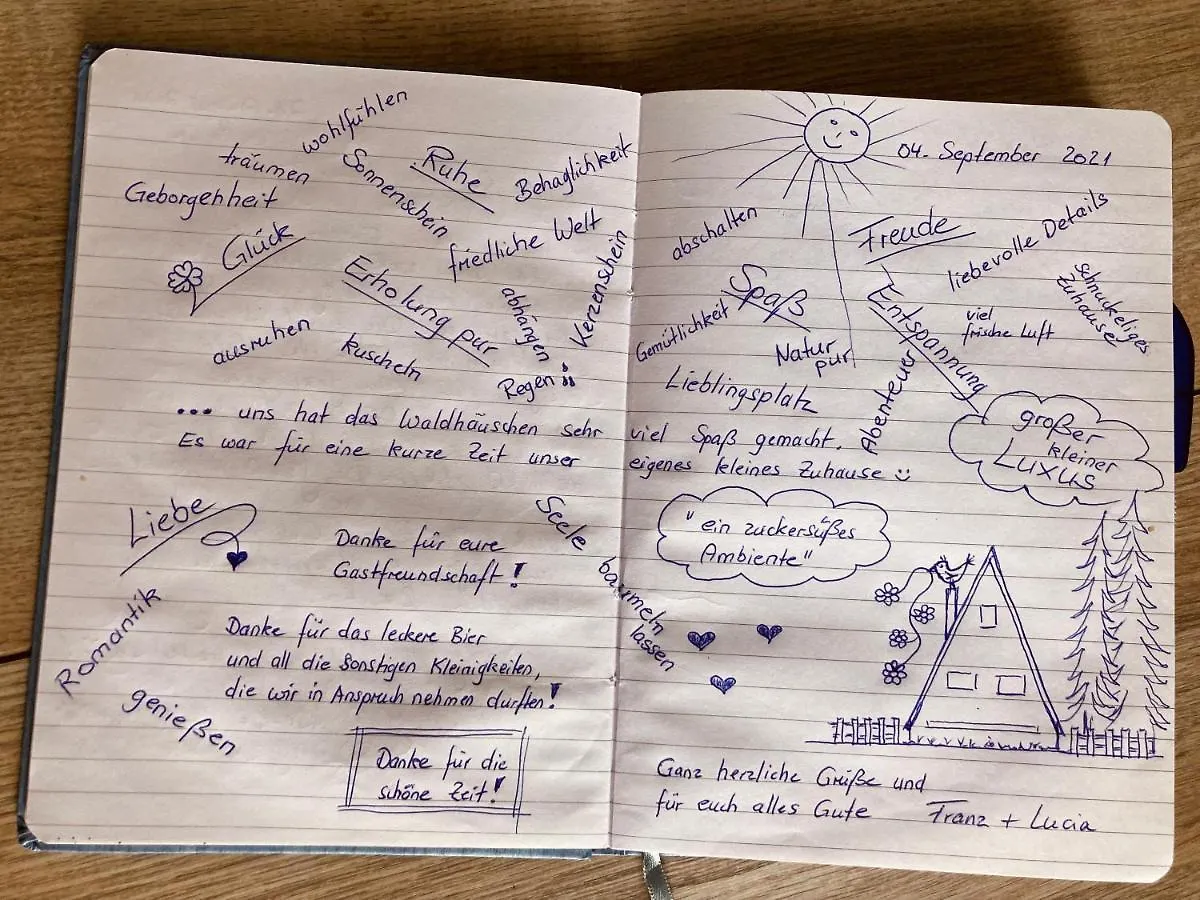 wohlfühlen
träumen
Sonnenschein
Ruhe
Behaglichkeit
Geborgenheit
Glück
friedliche Welt
Erholung pur
abhängen
Kerzenschein
ausruhen
kuscheln
Regen
04. September 2021
abschalten
Freude
liebevolle Details
Schnuckeliges
Zuhause
Spaß
Gemütlichkeit
Entspannung
viel
frische Luft
Natur
pur
Abenteuer
Lieblingsplatz
großer
kleiner
Luxus
... uns hat das Waldhäuschen sehr viel Spaß gemacht.
Es war für eine kurze Zeit unser eigenes kleines Zuhause
Liebe
Danke für eure
Gastfreundschaft!
Seele baumeln
lassen
"ein zuckersüßes
Ambiente"
Romantik
Danke für das leckere Bier
und all die sonstigen Kleinigkeiten,
die wir in Anspruch nehmen durften!
genießen
Danke für die
schöne Zeit!
Ganz herzliche Grüße und
für euch alles Gute Franz + Lucia